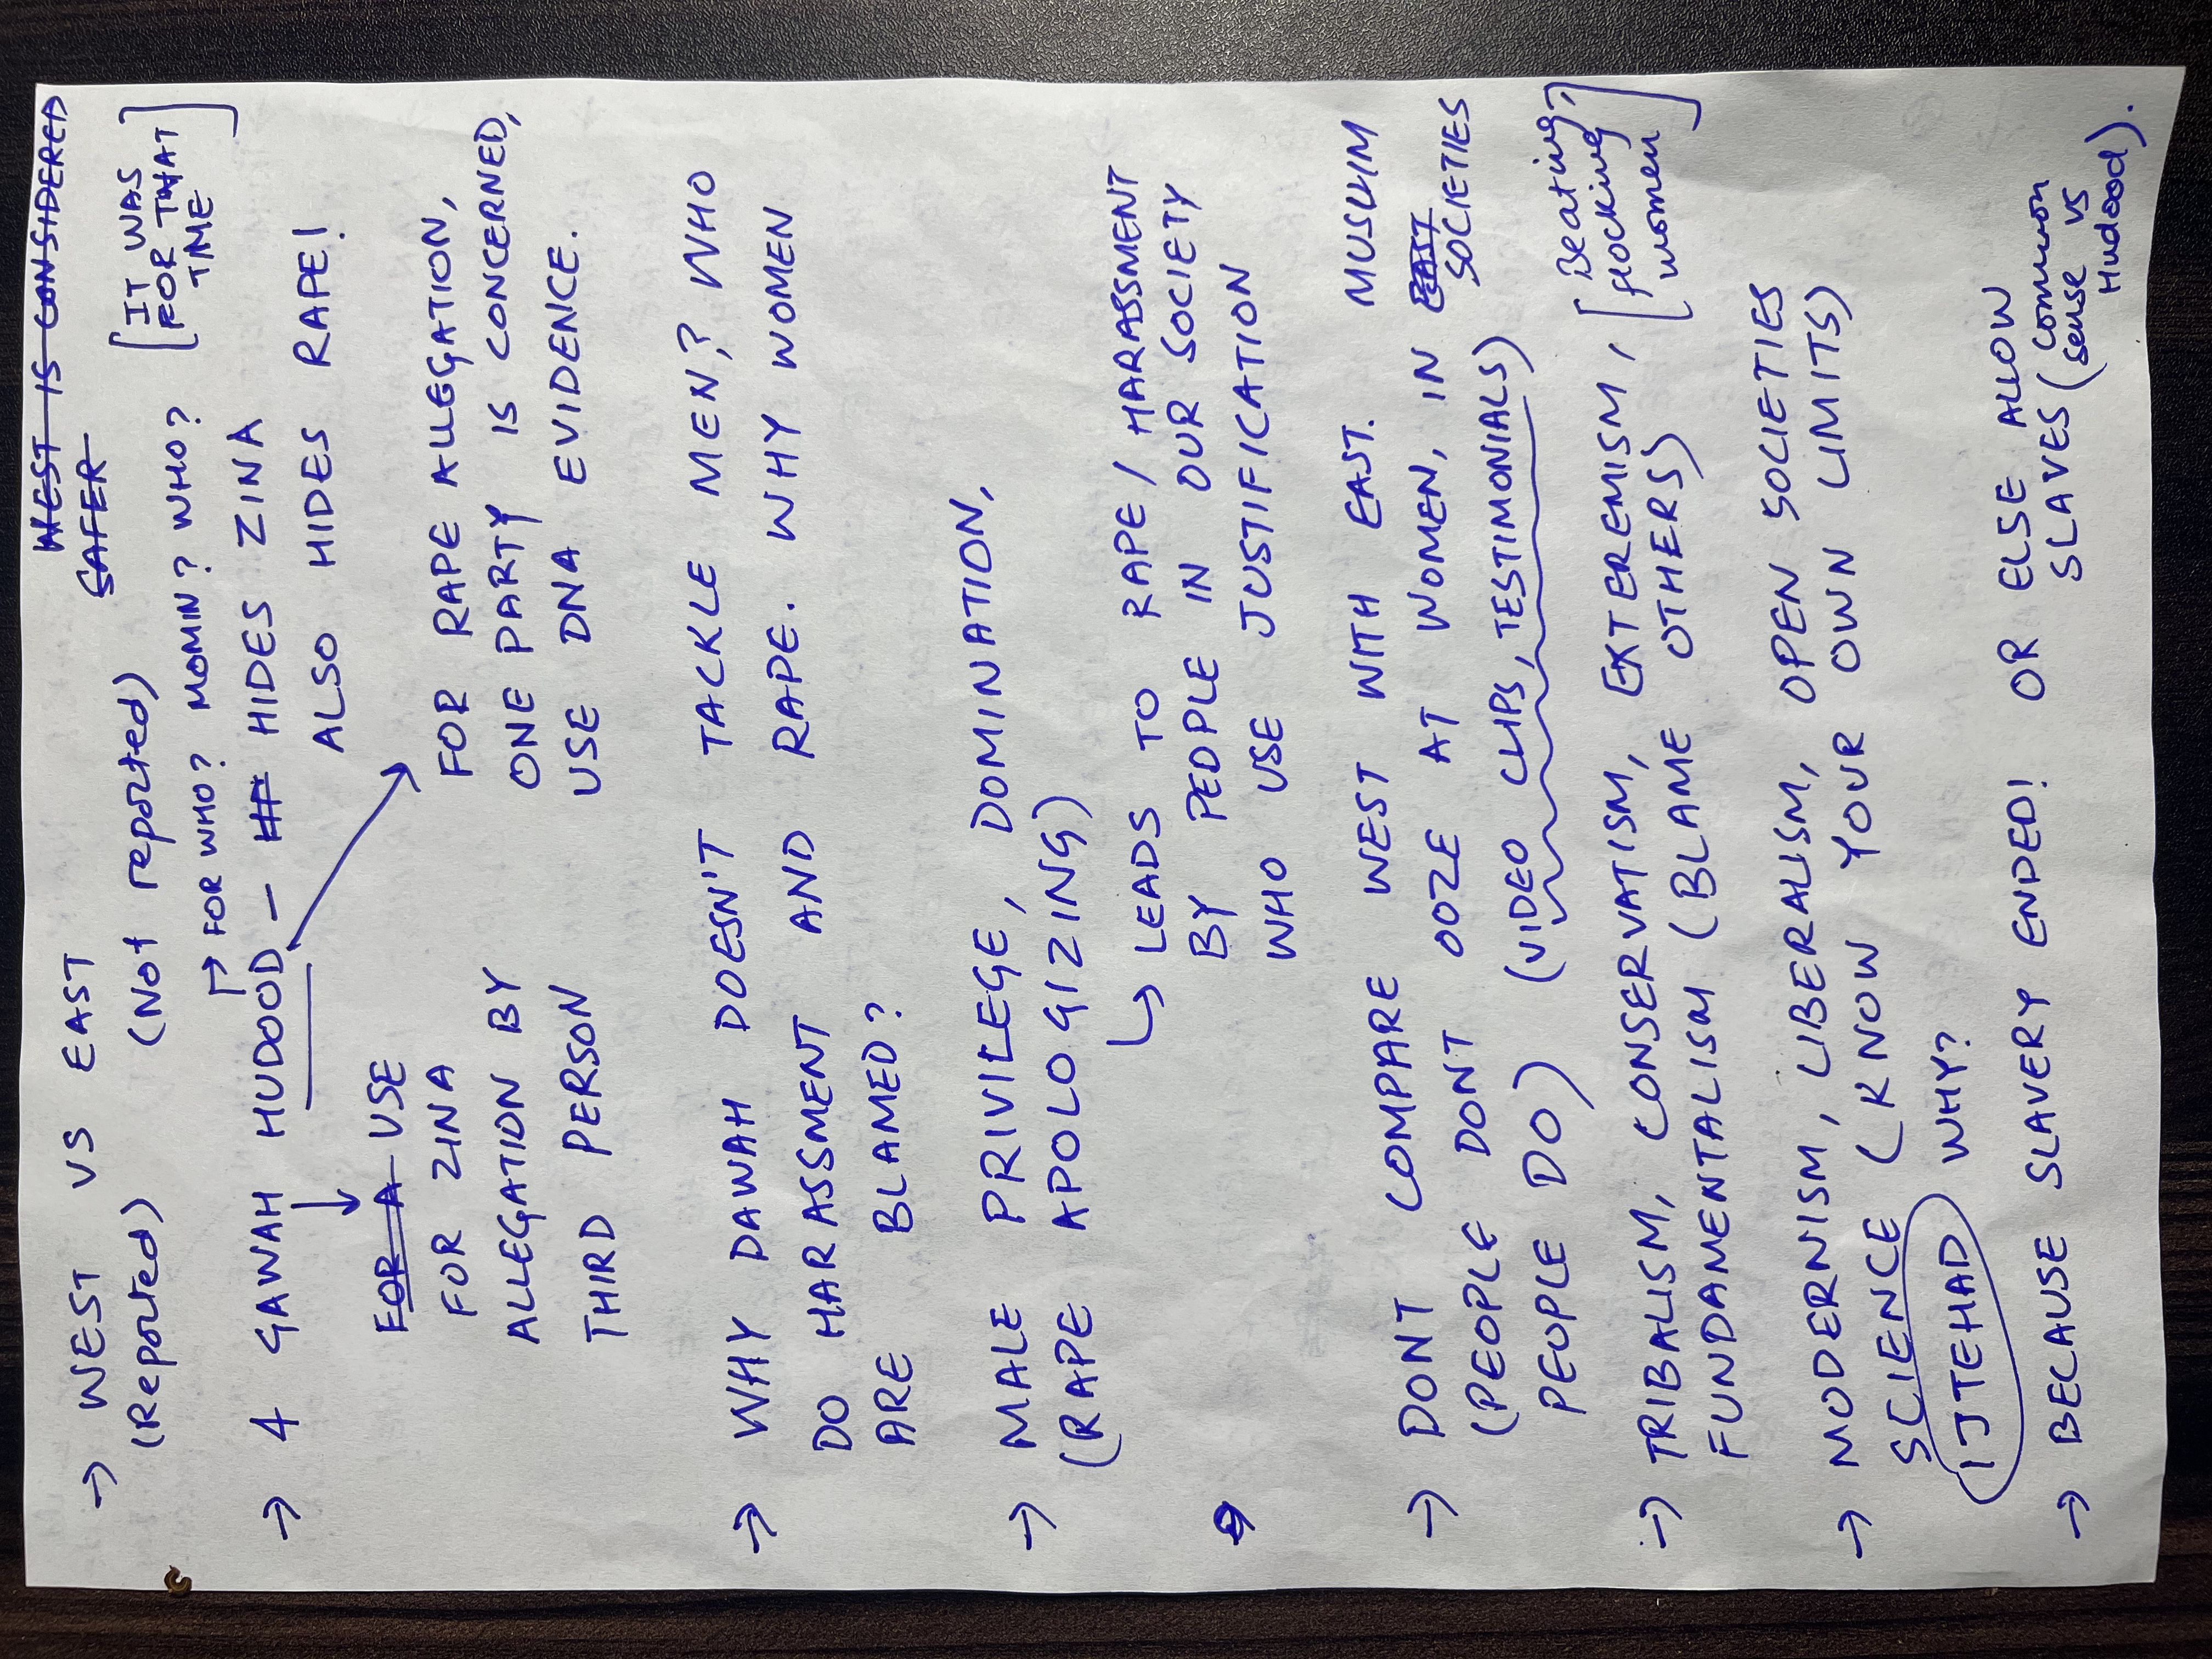 → WEST VS EAST WEST IS CONSIDERED
(Reported) (Not reported) SAFER
[IT WAS
FOR THAT
TIME]
→ FOR WHO? MOMIN? WHO?
→ 4 GAWAH HUDOOD - HIDES ZINA
ALSO HIDES RAPE!
FOR A USE
FOR ZINA
ALLEGATION BY
THIRD PERSON
FOR RAPE ALLEGATION,
ONE PARTY IS CONCERNED,
USE DNA EVIDENCE.
→ WHY DAWAH DOESN'T TACKLE MEN? WHO
DO HARASSMENT AND RAPE. WHY WOMEN
ARE BLAMED?
→ MALE PRIVILEGE, DOMINATION,
(RAPE APOLOGIZING)
↳ LEADS TO RAPE / HARASSMENT
BY PEOPLE IN OUR SOCIETY
WHO USE JUSTIFICATION
→ DONT COMPARE WEST WITH EAST. MUSLIM
(PEOPLE DONT OOZE AT WOMEN, IN EAST SOCIETIES
PEOPLE DO) (VIDEO CLIPS, TESTIMONIALS)
→ TRIBALISM, CONSERVATISM, EXTEREMISM, [Beating,
FUNDAMENTALISM (BLAME OTHERS) flocking
women]
→ MODERNISM, LIBERALISM, OPEN SOCIETIES
SCIENCE (KNOW YOUR OWN LIMITS)
IJTEHAD WHY?
→ BECAUSE SLAVERY ENDED! OR ELSE ALLOW
SLAVES (common
sense vs
Hudood).